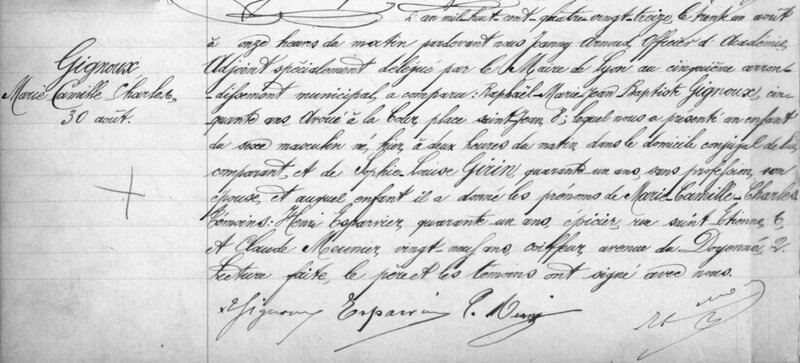 Gignoux
Marie Camille Charles,
30 août.
L'an mil huit cent quatre vingt treize, le trente un août
à onze heures du matin pardevant nous Arnoud, Officier d'Académie,
Adjoint spécialement délégué par le Maire de Lyon au cinquième arron-
-dissement municipal, a comparu: Raphaël-Marie-Jean Baptiste Gignoux, cin-
quante ans, Avoué à la Cour, place saint Jean, 8; lequel nous a présenté un enfant
du sexe masculin né, hier, à deux heures du matin dans le domicile conjugal de lui,
comparant, et de Sophie-Louise Girin, quarante un ans, sans profession, son
épouse, et auquel enfant il a donné les prénoms de Marie-Camille-Charles
Témoins: Henri Esparvier, quarante un ans, épicier, rue saint Etienne, 6,
et Claude Meunier, vingt neuf ans, coiffeur, avenue du Doyenné, 2.
Lecture faite, le père et les témoins ont signé avec nous.
Gignoux